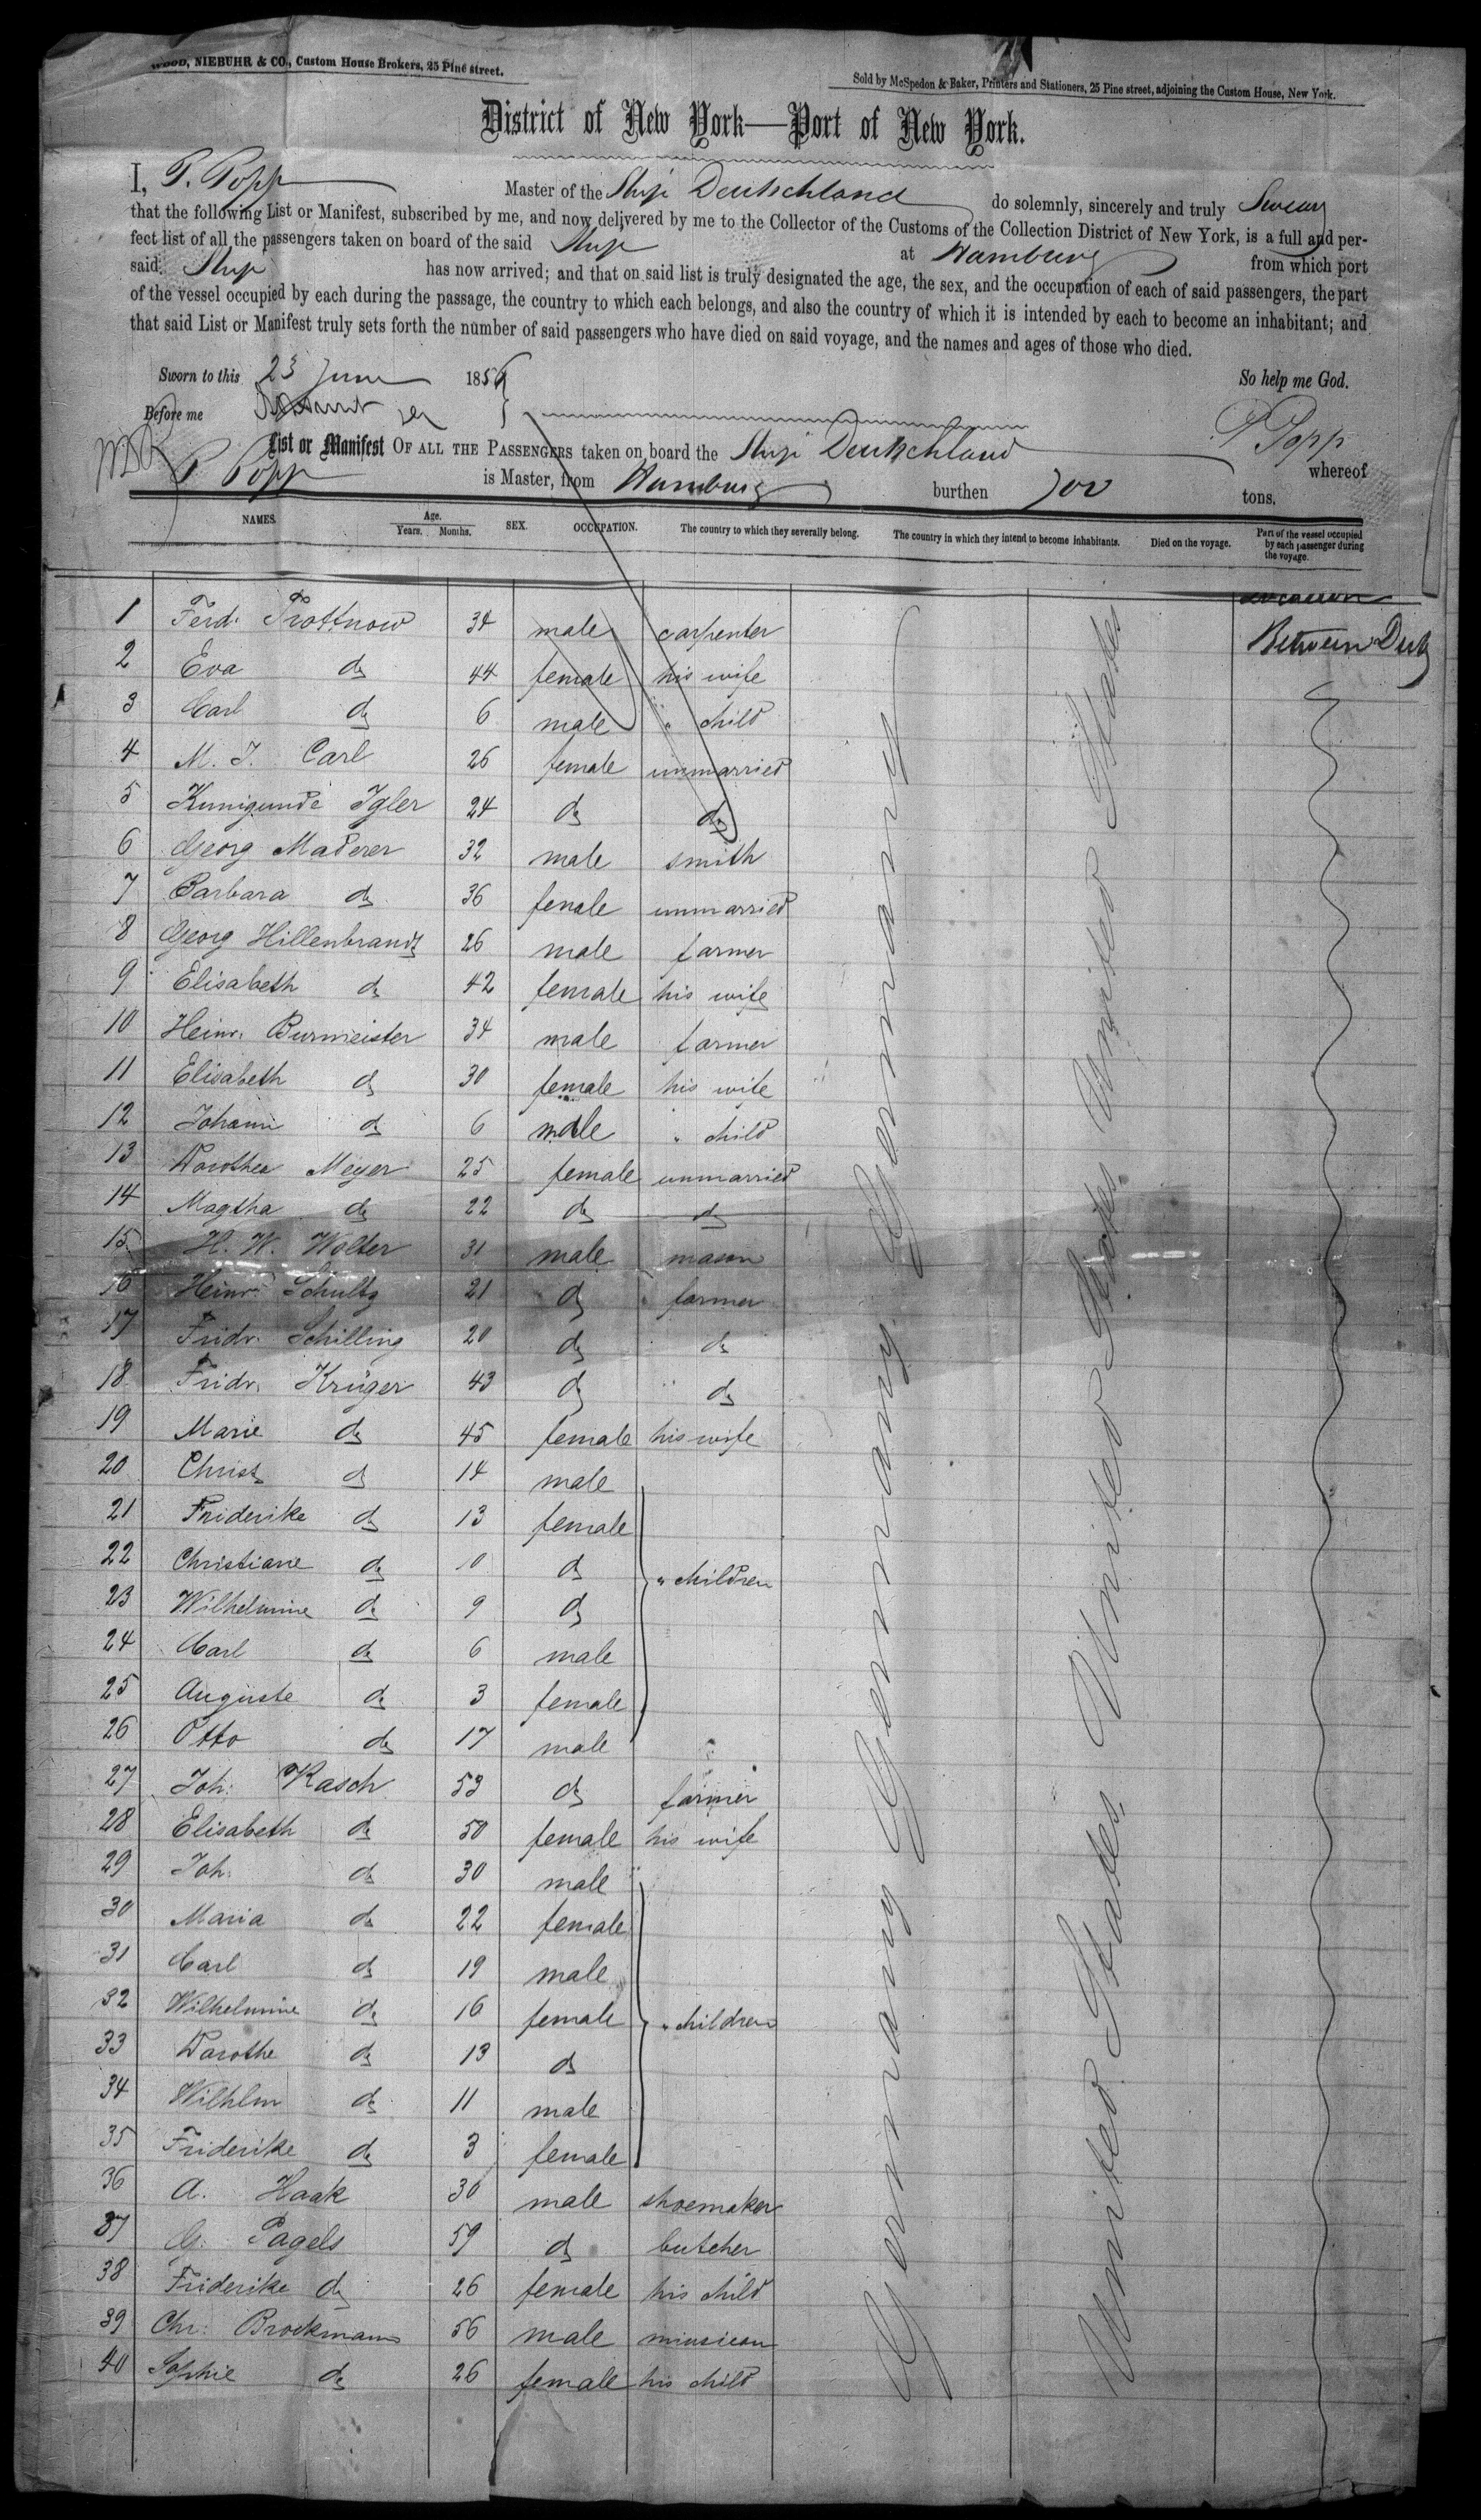 WOOD, NIEBUHR & CO., Custom House Brokers, 25 Pine street.
Sold by McSpedon & Baker, Printers and Stationers, 25 Pine street, adjoining the Custom House, New York.
District of New York—Port of New York.
I, P. Popp Master of the Ship Deutschland do solemnly, sincerely and truly Swear
that the following List or Manifest, subscribed by me, and now delivered by me to the Collector of the Customs of the Collection District of New York, is a full and per-
fect list of all the passengers taken on board of the said Ship at Hamburg from which port
said Ship has now arrived; and that on said list is truly designated the age, the sex, and the occupation of each of said passengers, the part
of the vessel occupied by each during the passage, the country to which each belongs, and also the country of which it is intended by each to become an inhabitant; and
that said List or Manifest truly sets forth the number of said passengers who have died on said voyage, and the names and ages of those who died.
Sworn to this 23 June 1856 So help me God.
Before me P Popp
List or Manifest OF ALL THE PASSENGERS taken on board the Ship Deutschland whereof
P Popp is Master, from Hamburg burthen 700 tons.
NAMES. Age. Years. Months. SEX. OCCUPATION. The country to which they severally belong. The country in which they intend to become inhabitants. Died on the voyage. Part of the vessel occupied by each passenger during the voyage.
Location
1 Ferd. Prottnow 34 male carpenter Between Deck
2 Eva do 44 female his wife
3 Carl do 6 male " child
4 M. J. Carl 26 female unmarried
5 Kunigunde Igler 24 do do
6 Georg Maderer 32 male smith
7 Barbara do 36 female unmarried
8 Georg Hillenbrandt 26 male farmer
9 Elisabeth do 42 female his wife
10 Heinr. Burmeister 34 male farmer
11 Elisabeth do 30 female his wife
12 Johann do 6 male " child
13 Dorothea Meyer 25 female unmarried
14 Magtha do 22 do do
15 H. W. Wolter 31 male mason
16 Heinr. Schultz 21 do farmer
17 Fridr. Schilling 20 do do
18 Fridr. Krüger 43 do do
19 Marie do 45 female his wife
20 Christ do 14 male
21 Friderike do 13 female
22 Christiane do 10 do " children
23 Wilhelmine do 9 do
24 Carl do 6 male
25 Auguste do 3 female
26 Otto do 17 male
27 Joh. Rasch 53 do farmer
28 Elisabeth do 50 female his wife
29 Joh. do 30 male
30 Maria do 22 female
31 Carl do 19 male
32 Wilhelmine do 16 female " children
33 Dorothe do 13 do
34 Wilhlm do 11 male
35 Friderike do 3 female
36 A. Haak 30 male shoemaker
37 G. Pagels 59 do butcher
38 Friderike do 26 female his child
39 Chr. Brockmann 56 male musican
40 Sophie do 26 female his child
Germany Germany Germany
United States United States United States